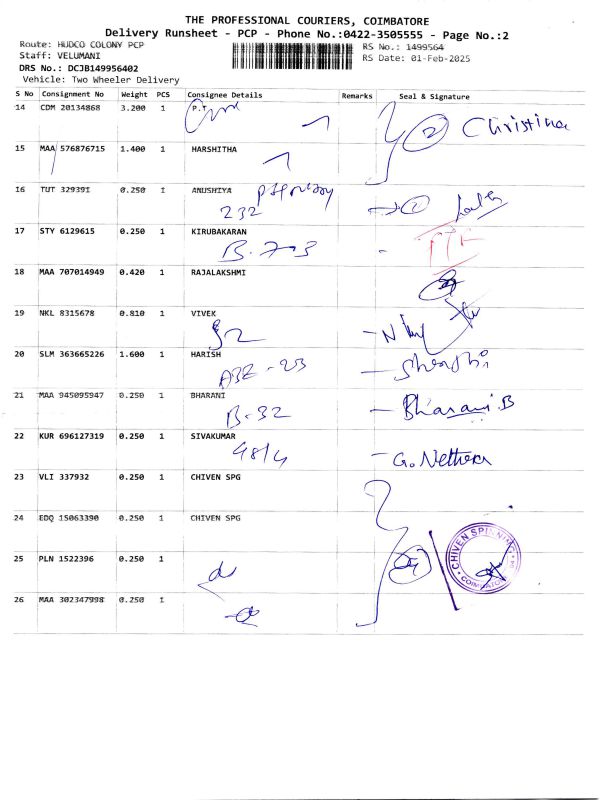 THE PROFESSIONAL COURIERS, COIMBATORE
Delivery Runsheet - PCP - Phone No.:0422-3505555 - Page No.:2
Route: HUDCO COLONY PCP
RS No.: 1499564
Staff: VELUMANI
RS Date: 01-Feb-2025
DRS No.: DCJB149956402
Vehicle: Two Wheeler Delivery
S No Consignment No Weight PCS Consignee Details Remarks Seal & Signature
14 CDM 20134868 3.200 1 P.T. 2 Christina
15 MAA 576876715 1.400 1 HARSHITHA
16 TUT 329391 0.250 1 ANUSHIYA
232
17 STY 6129615 0.250 1 KIRUBAKARAN
B.7-3
18 MAA 707014949 0.420 1 RAJALAKSHMI
19 NKL 8315678 0.810 1 VIVEK
20 SLM 363665226 1.600 1 HARISH
21 MAA 945095947 0.250 1 BHARANI Bharani.B
B-32
22 KUR 696127319 0.250 1 SIVAKUMAR
48/4
23 VLI 337932 0.250 1 CHIVEN SPG
24 EDQ 15063390 0.250 1 CHIVEN SPG
CHIVEN SPINNING
COIMBATORE
25 PLN 1522396 0.250 1
26 MAA 302347998 0.250 1